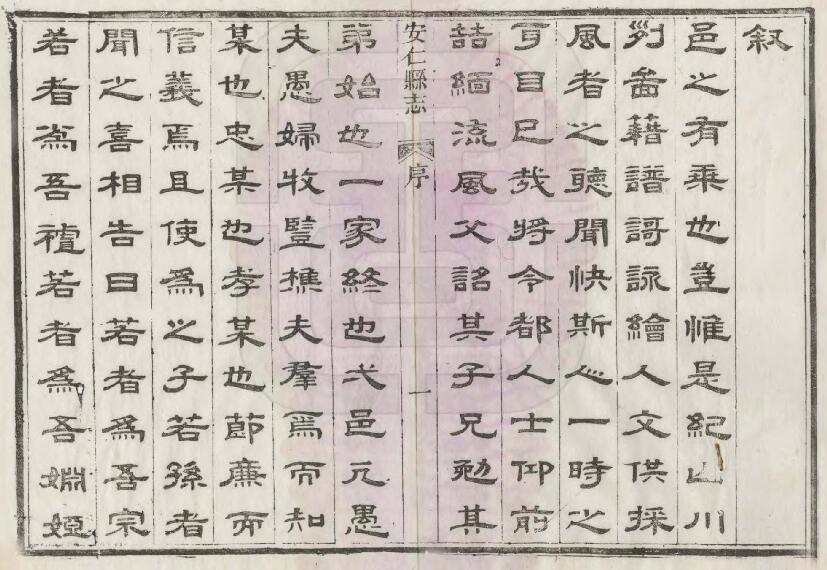 叙
邑之有乘也豈惟是紀山川
列啚藉譜謌詠繪人文供採
風者之聽聞快斯心一時之
耳目已哉將令都人士仰前
喆緬流風父詔其子兄勉其
安仁縣志 序 一
弟始也一家終也弌邑凡愚
夫愚婦牧豎樵夫羣焉而知
某也忠某也孝某也節廉而
信義焉且使為之子若孫者
聞之喜相告曰若者為吾宗
若者為吾若者為吾婣婭